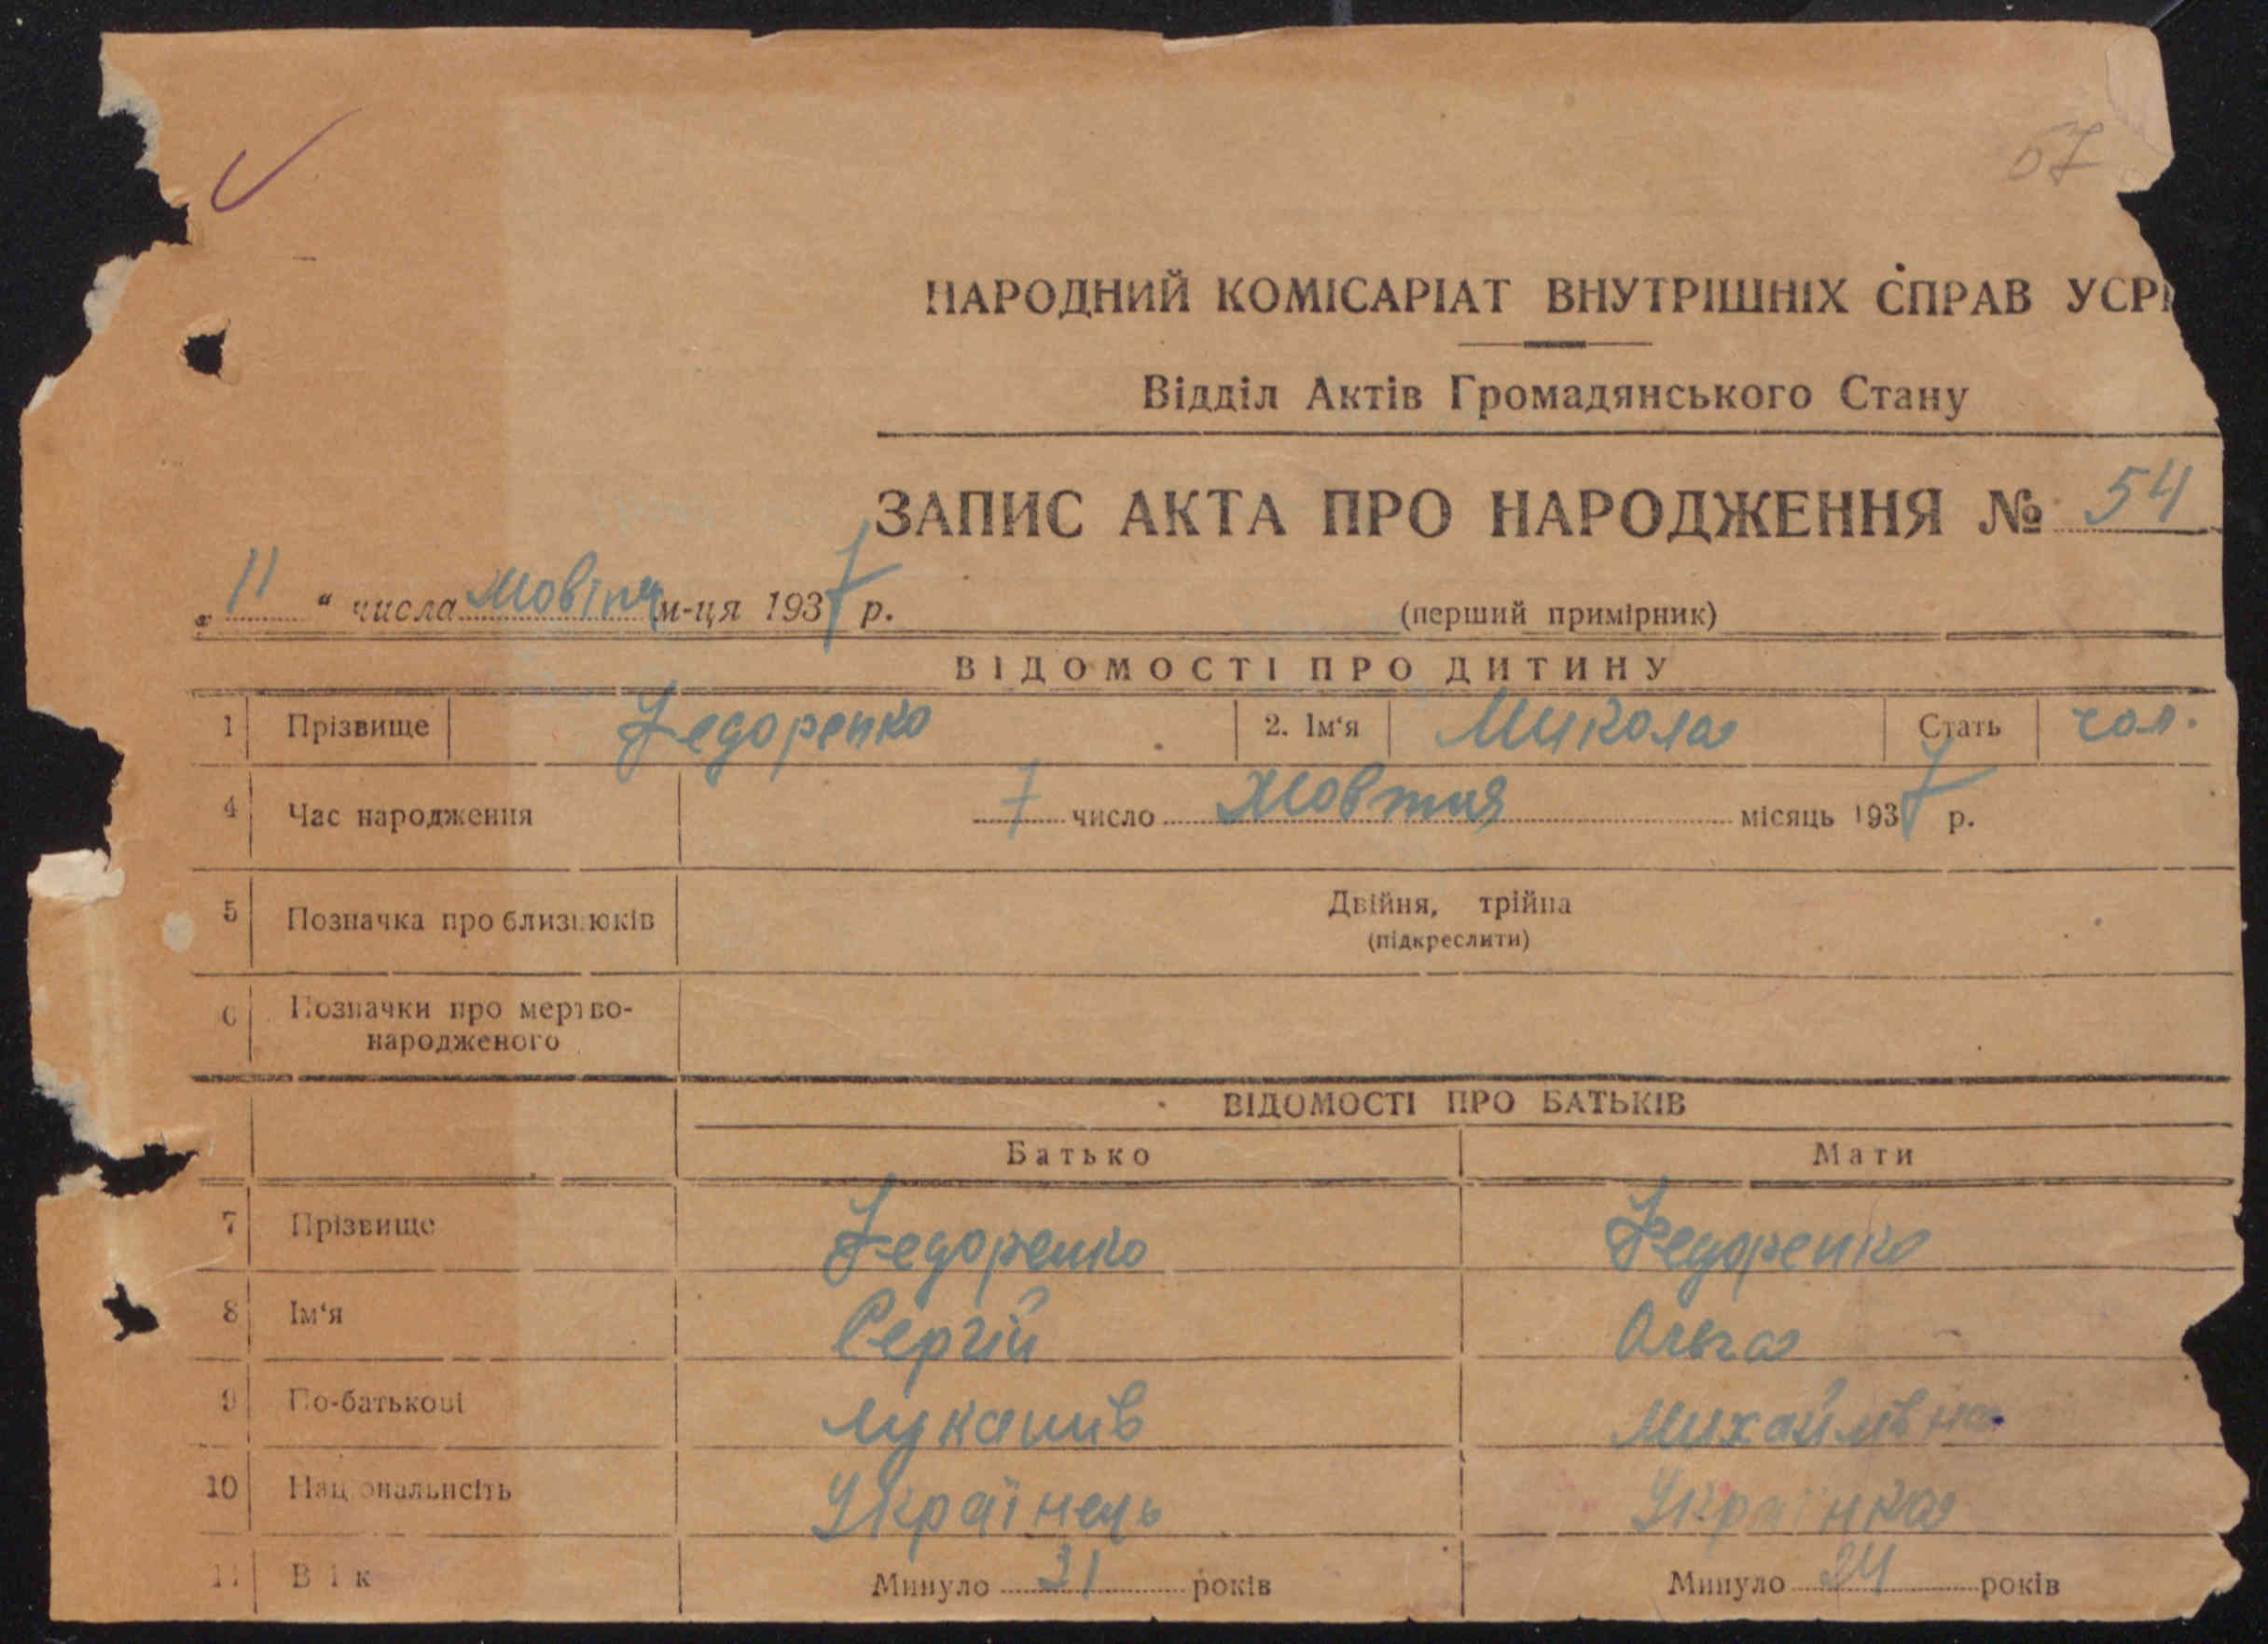 57
НАРОДНИЙ КОМІСАРІАТ ВНУТРІШНІХ СПРАВ УСР
Відділ Актів Громадянського Стану
ЗАПИС АКТА ПРО НАРОДЖЕННЯ № 54
„ 11 “ числа м-ця 1937 р.
(перший примірник)
ВІДОМОСТІ ПРО ДИТИНУ
1 Прізвище Федоренко 2. Ім‘я Микола Стать чол.
4 Час народження 7 число Жовтня місяць 1937 р.
5 Позначка про близнюків Двійня, трійня
(підкреслити)
6 Позначки про мертво-
народженого
ВІДОМОСТІ ПРО БАТЬКІВ
Батько Мати
7 Прізвище Федоренко Федоренко
8 Ім‘я Сергій Ольга
9 По-батькові Лукашів Михайлівна
10 Національність Українець Українка
11 Вік Минуло 31 років Минуло 24 років